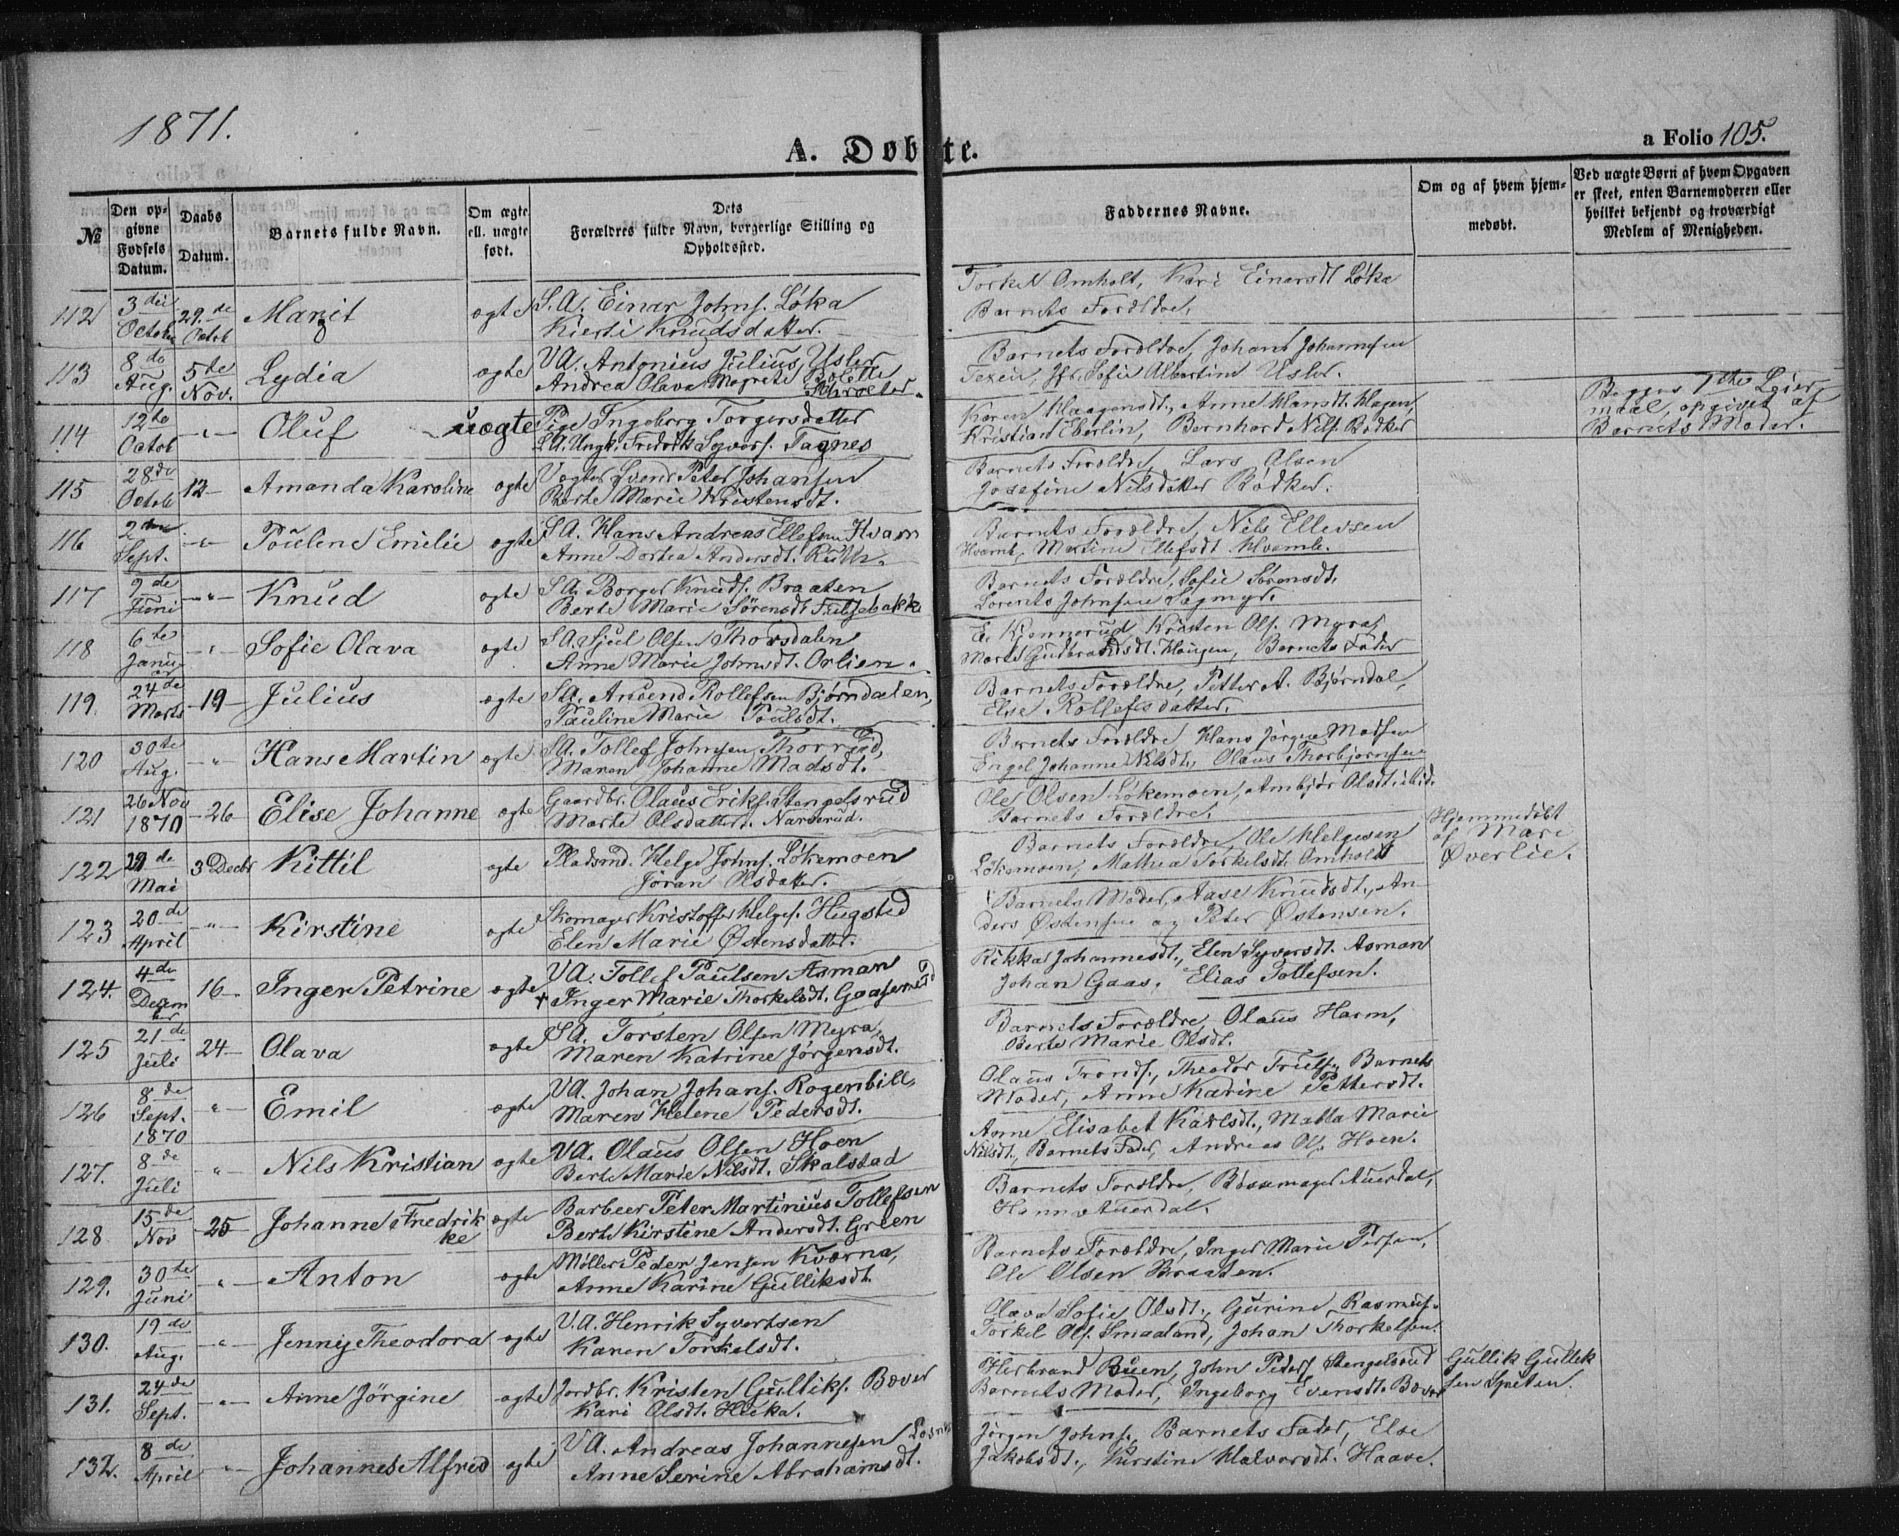 1871.
A. Døbte.
a Folio 105.
№
Den op-
givne
Fødsels
Datum.
Daabs
Datum.
Barnets fulde Navn.
Om ægte
ell. uægte
født.
Dets
Forældres fulde Navn, borgerlige Stilling og
Opholdssted.
Faddernes Navne.
Om og af hvem hjem-
medøbt.
Ved uægte Børn af hvem Opgaven
er skeet, enten Barnemoderen eller
hvilket bekjendt og troværdigt
Medlem af Menigheden.
112 3die Octob 29de Octob Margit ægte S.A. Einar Johns. Løka
Kierti Knudsdatter.
Torkel Omholt, Kari Einarsdt. Løka
Barnets Forældre.
113 8de Aug. 5te Nov. Lydia ægte VA. Antonius Julius Usler
Andrea Olava Magrete Bolette Schrøeter.
Barnets Forældre, Johans Johannesen
Texeu, Jfr. Sofie Albertine Usler.
114 12te Octob " Oluf uægte Pige Ingeborg Torgersdatter
S.A. Ungk. Fredrik Syvers. Tagnes
Karen Haagensdt., Anne Hansdt. Hagen,
Kristian Eberlin, Bernhard Nils. Bødker
Begges 7de Leier-
maal, opgivet af
Barnets Moder.
115 28de Octob 12 Amanda Karoline ægte Vogter Svend Peter Johansen
Berte Marie Kristensdt.
Barnets Forældre, Lars Olsen
Josefine Nilsdatter Bødker.
116 2den Sept. " Pouline Emilie ægte S.A. Hans Andreas Ellefsen Hvam
Anne Dortea Andersdt. Ruth.
Barnets Forældre, Nils Ellevsen
Hvamb, Martine Ellefsdt. Hvamb.
117 9de Juni " Knud ægte S.A. Borger Knuds. Braaten
Berte Marie Sörensdt. Fulsebakke
Barnets Forældre, Sofie Sörensdt.
Lorents Johnsen Sagmyr.
118 6te Januar " Sofie Olava ægte S.A. Sjul Olsen Thorsdalen
Anne Marie Johnsdt. Orlien.
E. Kjennerud, Kristen Ols. Myra,
Marte Gudbrandsdt. Haugen, Barnets Fader
119. 24de Marts 19 Julius ægte S.A. Anvend Rollefsen Bjørndalen,
Pauline Marie Poulsdt.
Barnets Forældre, Petter A. Bjørndal,
Else Rollefsdatter.
120 30te Aug. " Hans Martin ægte S.A. Tollef Johnsen Thorrud,
Maren Johanne Madsdt.
Barnets Forældre, Hans Jørgen Madsen
Engel Johanne Nilsdt., Olaus Thorbjørnsen
121 26 Nov 1870 26 Elise Johanne ægte Gaardbr. Olaus Eriks. Stengelsrud
Marte Olsdatter Narverud.
Ole Olsen Løkemoen, Ambjør Olsdt. ibid.
Barnets Forældre.
122 29de Mai 3 Decbr Kittil ægte Pladsmd. Helge Johns. Løkemoen
Jöran Olsdatter.
Barnets Forældre, Ole Helgesen
Løkemoen, Mathea Torkelsdt. Omholt
Hjemmedøbt
af Mari
Øverlie.
123 20de April " Kirstine ægte Skomager Kristoffer Helges. Hugsted
Elen Marie Østensdatter.
Barnets Moder, Aase Knudsdt., An-
ders Østensen og Peter Østensen.
124. 4de Decem-ber 16 Inger Petrine ægte VA. Tollef Paulsen Asman
Inger Marie Thorkelsdt. Gaaserud
Rikka Johannesdt., Elen Syversdt. Asman
Johan Gaas, Elias Tollefsen.
125 21de Juli 24 Olava ægte S.A. Torsten Olsen Myra,
Maren Katrine Jörgensdt.
Barnets Forældre, Olaus Harm,
Berte Marie Olsdt.
126 8de Sept. 1870 " Emil ægte VA. Johan Johans. Rogenbill
Maren Helene Pedersdt.
Olaus Tronds., Theodor Truls., Barnets
Moder, Anne Karine Pettersdt.
127. 8de Juli " Nils Kristian ægte VA. Olaus Olsen Hoen
Berte Marie Nilsdt. Skalstad
Anne Elisabet Karlsdt., Matta Marie
Nilsdt., Barnets Fader, Andreas Ols. Hoen.
128 15de Nov 25 Johanne Fredrik-
ke ægte Barbeer Peter Martinius Tollefsen
Berte Kirstine Andersdt. Green
Barnets Forældre, Bøssemager Auerdal,
Hanna Auerdal.
129. 30te Juni " Anton ægte Møller Peder Jensen Kværna,
Anne Karine Gulliksdt.
Barnets Forældre, Inger Marie Persen,
Ole Olsen Braaten.
130. 19de Aug. " Jenny Theodora ægte V.A. Henrik Syvertsen
Karen Torkelsdt.
Olava Sofie Olsdt., Gurine Rasmus.
Torkel Ols. Smaaland, Johan Thorkelsen.
131. 24de Sept. " Anne Jörgine ægte Jordbr. Kristen Gulliks. Bæver
Kari Olsdt. Huka.
Herbrand Buen, John Peders. Stengelsrud
Barnets Moder, Ingeborg Evensdt. Bæver
Gullik Gullik
sen Spæten.
132. 8de April " Johannes Alfred ægte VA. Andreas Johannesen Løsnes
Anne Serine Abrahamsdt.
Jørgen Johns., Barnets Fader, Else
Jakobsdt., Kirstine Halvorsdt. Haave.